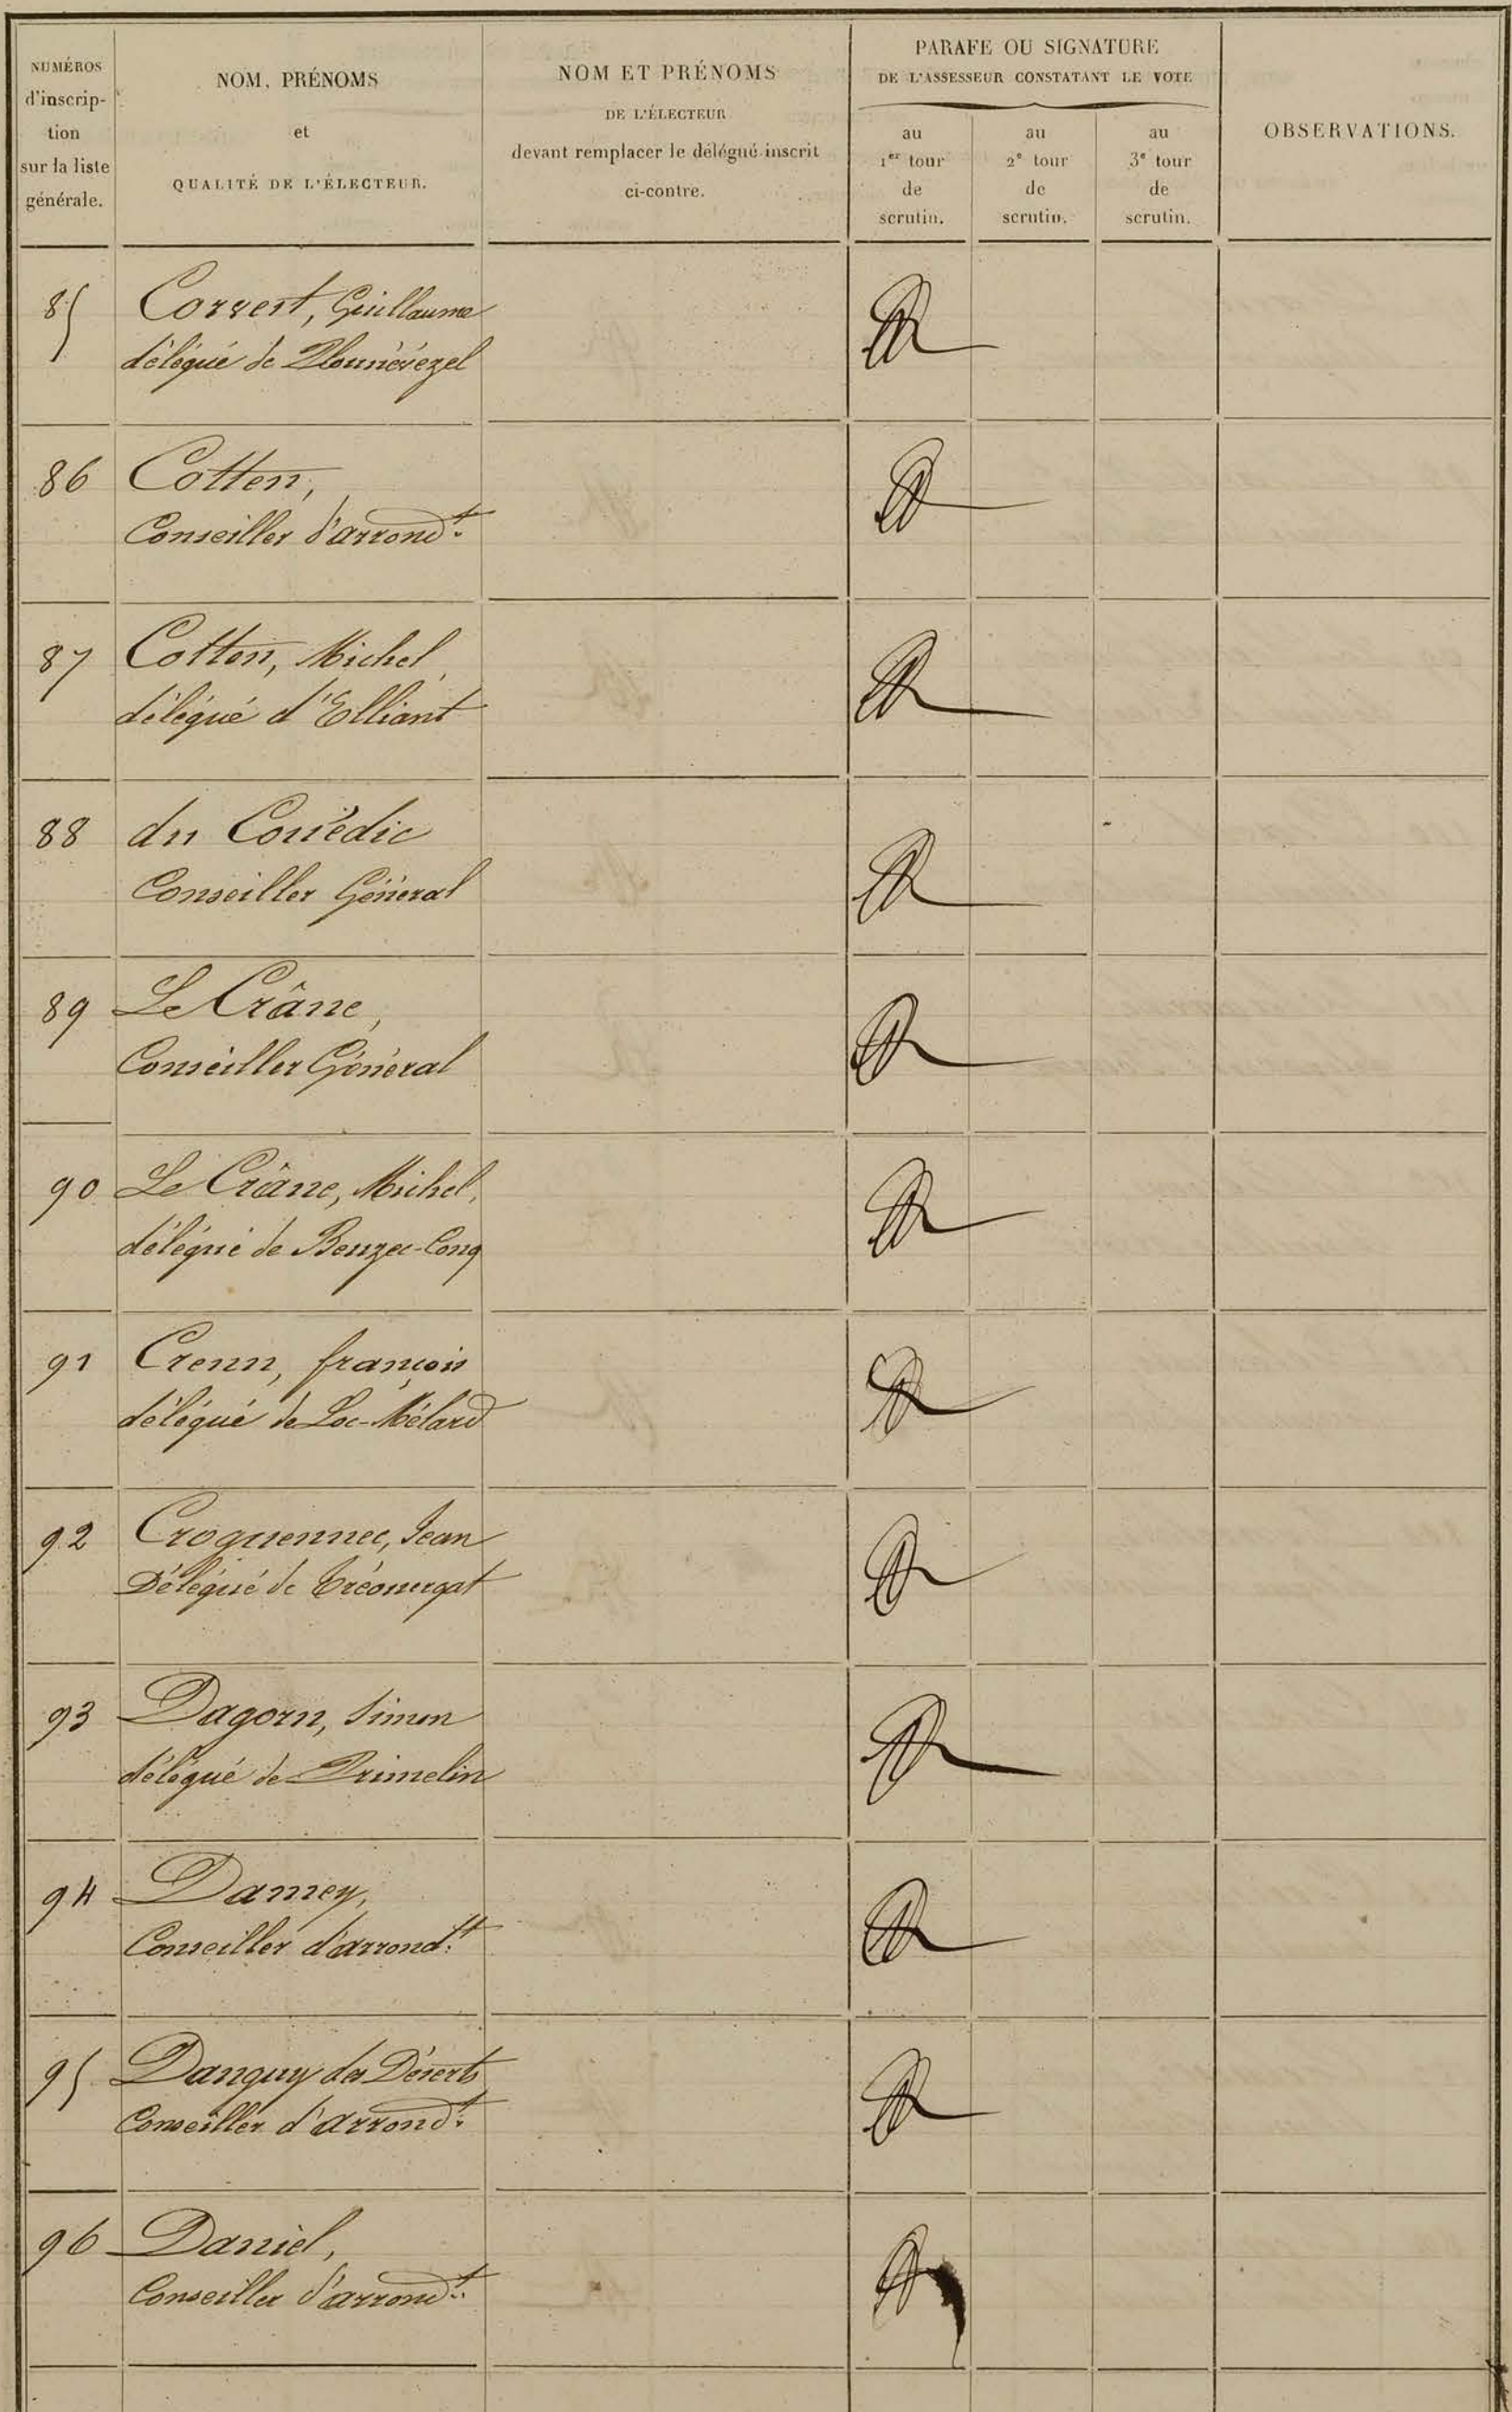 NUMÉROS
d'inscrip-
tion
sur la liste
générale.
NOM, PRÉNOMS
et
QUALITÉ DE L'ÉLECTEUR.
NOM ET PRÉNOMS
DE L'ÉLECTEUR
devant remplacer le délégué inscrit
ci-contre.
PARAFE OU SIGNATURE
DE L'ASSESSEUR CONSTATANT LE VOTE
au
1er tour
de
scrutin.
au
2e tour
de
scrutin.
au
3e tour
de
scrutin.
OBSERVATIONS.
85 Corvest, Guillaume
délégué de Plounévézel
86 Cotten,
Conseiller d'arrondt.
87 Cotten, Michel,
délégué d'Elliant
88 du Couëdic
Conseiller Général
89 Le Crâne,
Conseiller Général
90 Le Crâne, Michel,
délégué de Beuzec-Conq
91 Crenn, françois
délégué de Loc-Mélard
92 Croguennec, Jean
Délégué de Tréouergat
93 Dagorn, Simon
délégué de Primelin
94 Damey,
Conseiller d'arrondt.
95 Danguy des Déserts
Conseiller d'arrondt.
96 Daniel,
Conseiller d'arrondt.